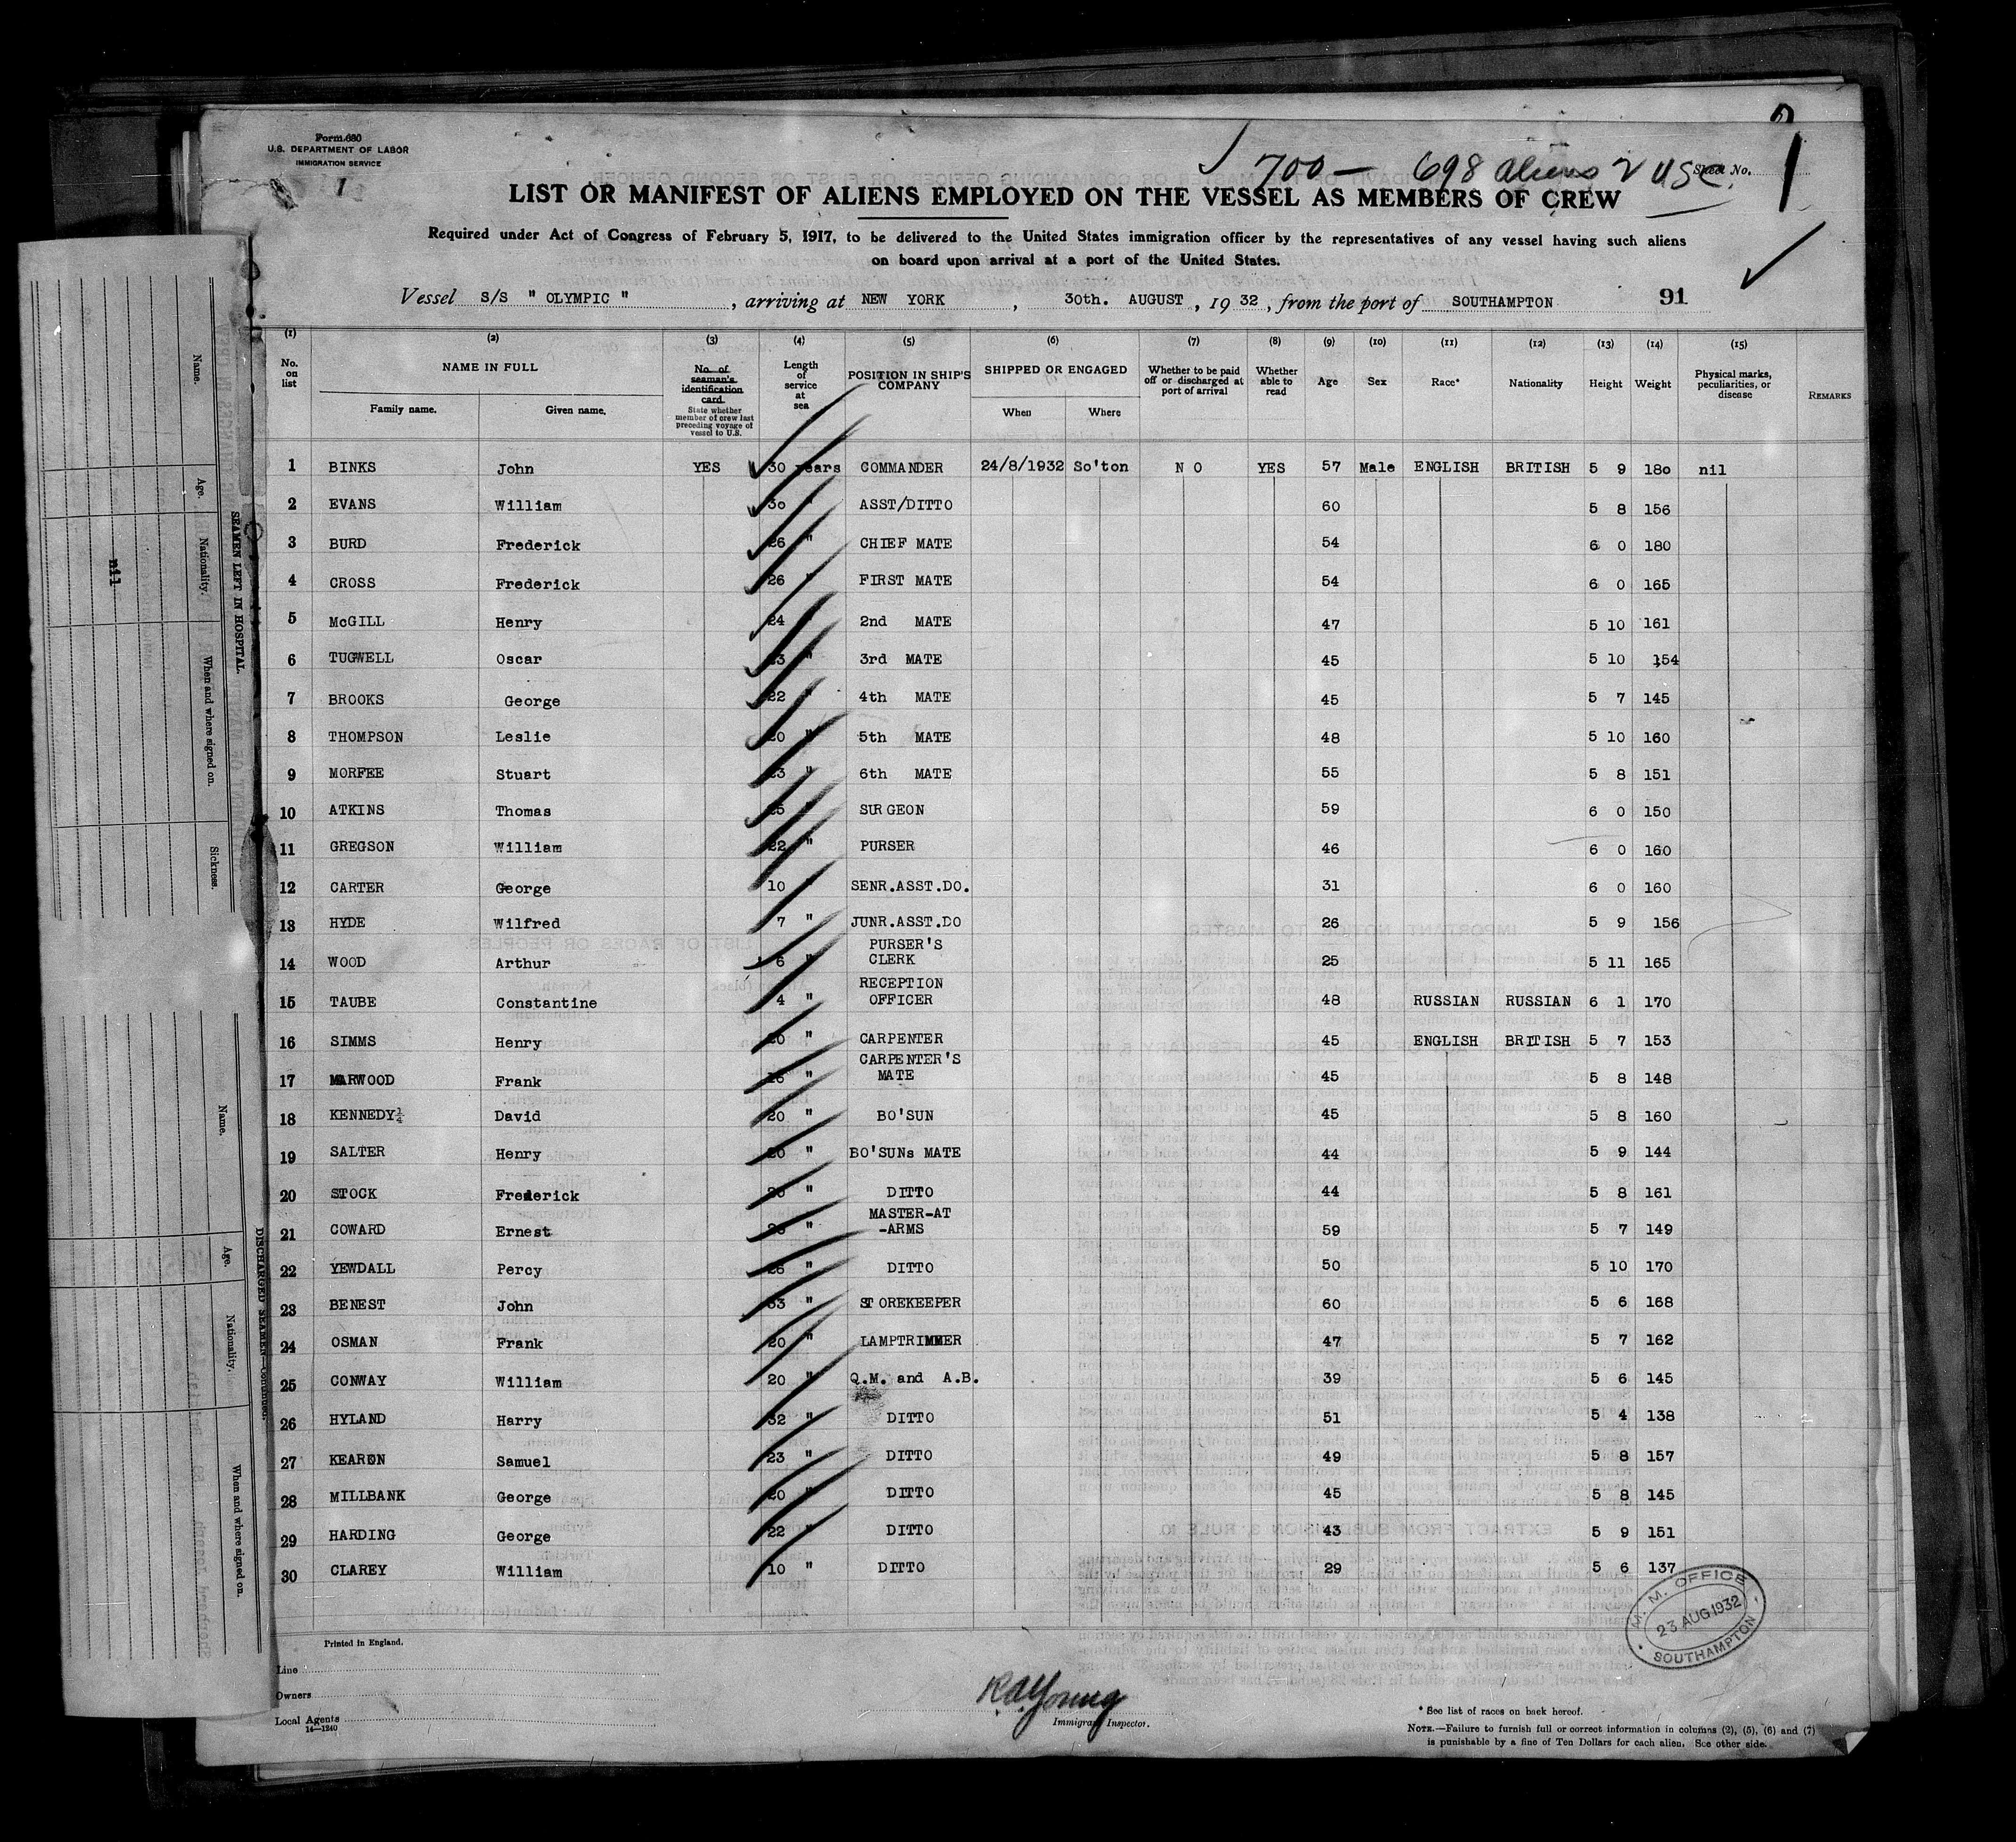 Form 680
U.S. DEPARTMENT OF LABOR
IMMIGRATION SERVICE
1
700 — 698 aliens 2 USC.
Sheet No. 1
LIST OR MANIFEST OF ALIENS EMPLOYED ON THE VESSEL AS MEMBERS OF CREW
Required under Act of Congress of February 5, 1917, to be delivered to the United States immigration officer by the representatives of any vessel having such aliens
on board upon arrival at a port of the United States.
Vessel S/S " OLYMPIC ", arriving at NEW YORK, 30th. AUGUST, 19 32, from the port of SOUTHAMPTON 91
(1) No. on list (2) NAME IN FULL Family name. Given name. (3) No. of seaman's identification card. State whether member of crew last preceding voyage of vessel to U.S. (4) Length of service at sea (5) POSITION IN SHIP'S COMPANY (6) SHIPPED OR ENGAGED When Where (7) Whether to be paid off or discharged at port of arrival (8) Whether able to read (9) Age (10) Sex (11) Race* (12) Nationality (13) Height (14) Weight (15) Physical marks, peculiarities, or disease REMARKS
1 BINKS John YES 30 years COMMANDER 24/8/1932 So'ton N O YES 57 Male ENGLISH BRITISH 5 9 180 nil
2 EVANS William 30 " ASST/DITTO 60 5 8 156
3 BURD Frederick 26 " CHIEF MATE 54 6 0 180
4 CROSS Frederick 26 " FIRST MATE 54 6 0 165
5 McGILL Henry 24 " 2nd MATE 47 5 10 161
6 TUGWELL Oscar " 3rd MATE 45 5 10 154
7 BROOKS George 22 " 4th MATE 45 5 7 145
8 THOMPSON Leslie " 5th MATE 48 5 10 160
9 MORFEE Stuart " 6th MATE 55 5 8 151
10 ATKINS Thomas " SURGEON 59 6 0 150
11 GREGSON William 22 " PURSER 46 6 0 160
12 CARTER George 10 " SENR.ASST.DO. 31 6 0 160
13 HYDE Wilfred 7 " JUNR.ASST.DO 26 5 9 156
14 WOOD Arthur 6 " PURSER'S CLERK 25 5 11 165
15 TAUBE Constantine 4 " RECEPTION OFFICER 48 RUSSIAN RUSSIAN 6 1 170
16 SIMMS Henry 20 " CARPENTER 45 ENGLISH BRITISH 5 7 153
17 MARWOOD Frank " CARPENTER'S MATE 45 5 8 148
18 KENNEDY¼ David 20 " BO'SUN 45 5 8 160
19 SALTER Henry 20 " BO'SUNs MATE 44 5 9 144
20 STOCK Frederick " DITTO 44 5 8 161
21 COWARD Ernest " MASTER-AT -ARMS 59 5 7 149
22 YEWDALL Percy 26 " DITTO 50 5 10 170
23 BENEST John 33 " STOREKEEPER 60 5 6 168
24 OSMAN Frank 20 " LAMPTRIMMER 47 5 7 162
25 CONWAY William 20 " Q.M. and A.B. 39 5 6 145
26 HYLAND Harry 32 " DITTO 51 5 4 138
27 KEARON Samuel 23 " DITTO 49 5 8 157
28 MILLBANK George 20 " DITTO 45 5 8 145
29 HARDING George 22 " DITTO 43 5 9 151
30 CLAREY William 10 " DITTO 29 5 6 137
M. M. OFFICE
23 AUG 1932
SOUTHAMPTON
Printed in England.
Line
Owners
Local Agents
14—1240
R A Young
Immigrant Inspector.
* See list of races on back hereof.
NOTE.—Failure to furnish full or correct information in columns (2), (5), (6) and (7)
is punishable by a fine of Ten Dollars for each alien. See other side.
SEAMEN LEFT IN HOSPITAL.
Name. Age. Nationality. When and where signed on. Sickness.
nil
DISCHARGED SEAMEN—Continued.
Name. Age. Nationality. When and where signed on.